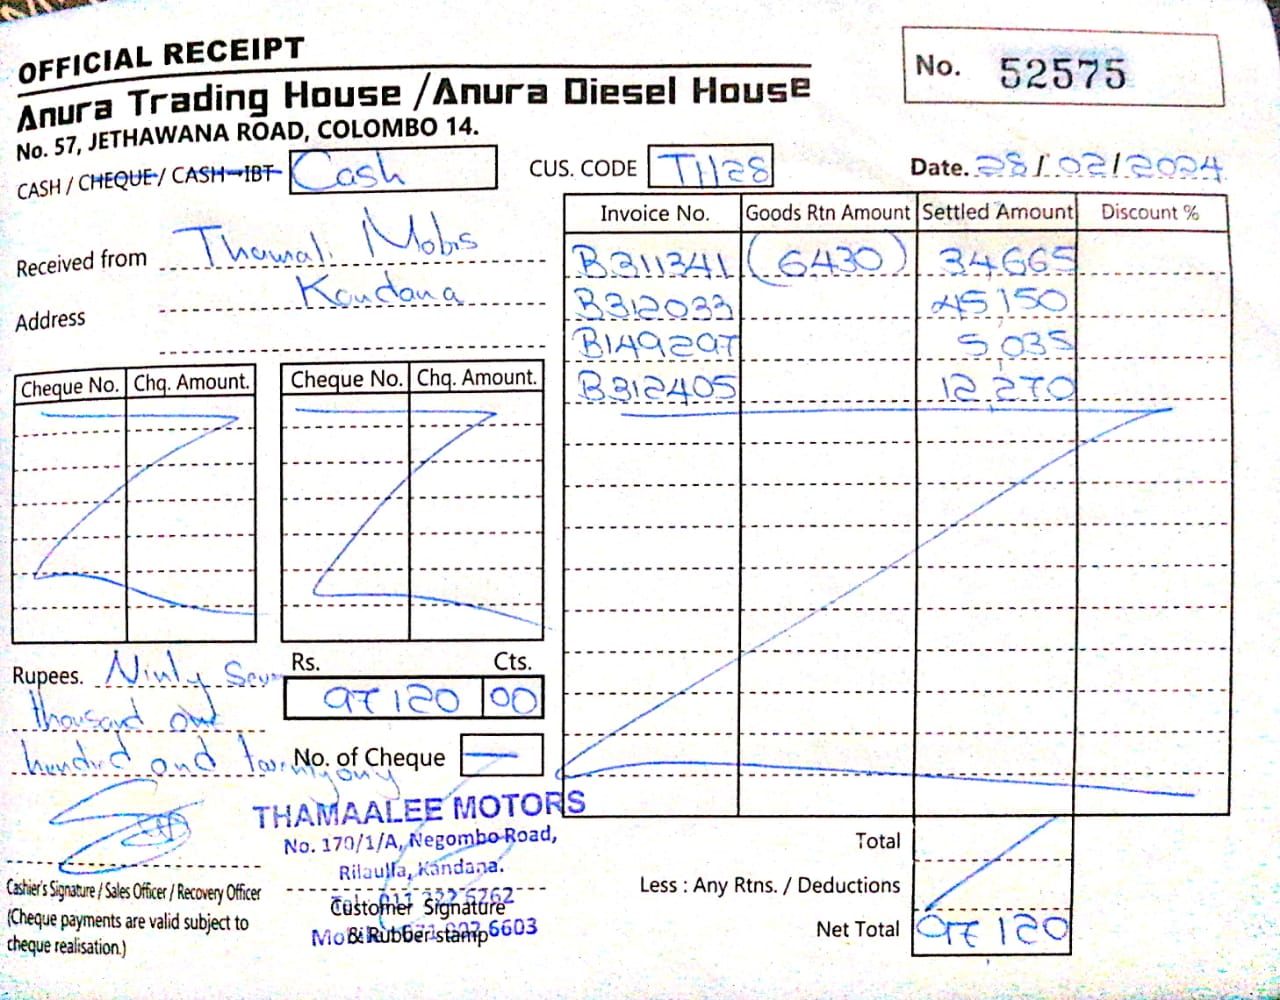 OFFICIAL RECEIPT
No. 52575
Anura Trading House / Anura Diesel House
No. 57, JETHAWANA ROAD, COLOMBO 14.
CASH / CHEQUE / CASH-IBT Cash
CUS. CODE TH28
Date. 28/02/2024
Received from Thamali Mobs
Kandana
Address
Invoice No. Goods Rtn Amount Settled Amount Discount %
B311341 (6430) 34665
B312033 45150
B149297 5,035
B312405 12,270
Cheque No. Chq. Amount. Cheque No. Chq. Amount.
Rupees. Ninty Seven
thousand one
hundrd and twenty ony
Rs. Cts.
97120 00
No. of Cheque —
THAMAALEE MOTORS
No. 170/1/A, Negombo Road,
Rilaulla, Kandana.
Customer Signature
& Rubber stamp
6603
Cashier's Signature / Sales Officer / Recovery Officer
(Cheque payments are valid subject to
cheque realisation.)
Total
Less : Any Rtns. / Deductions
Net Total 97120